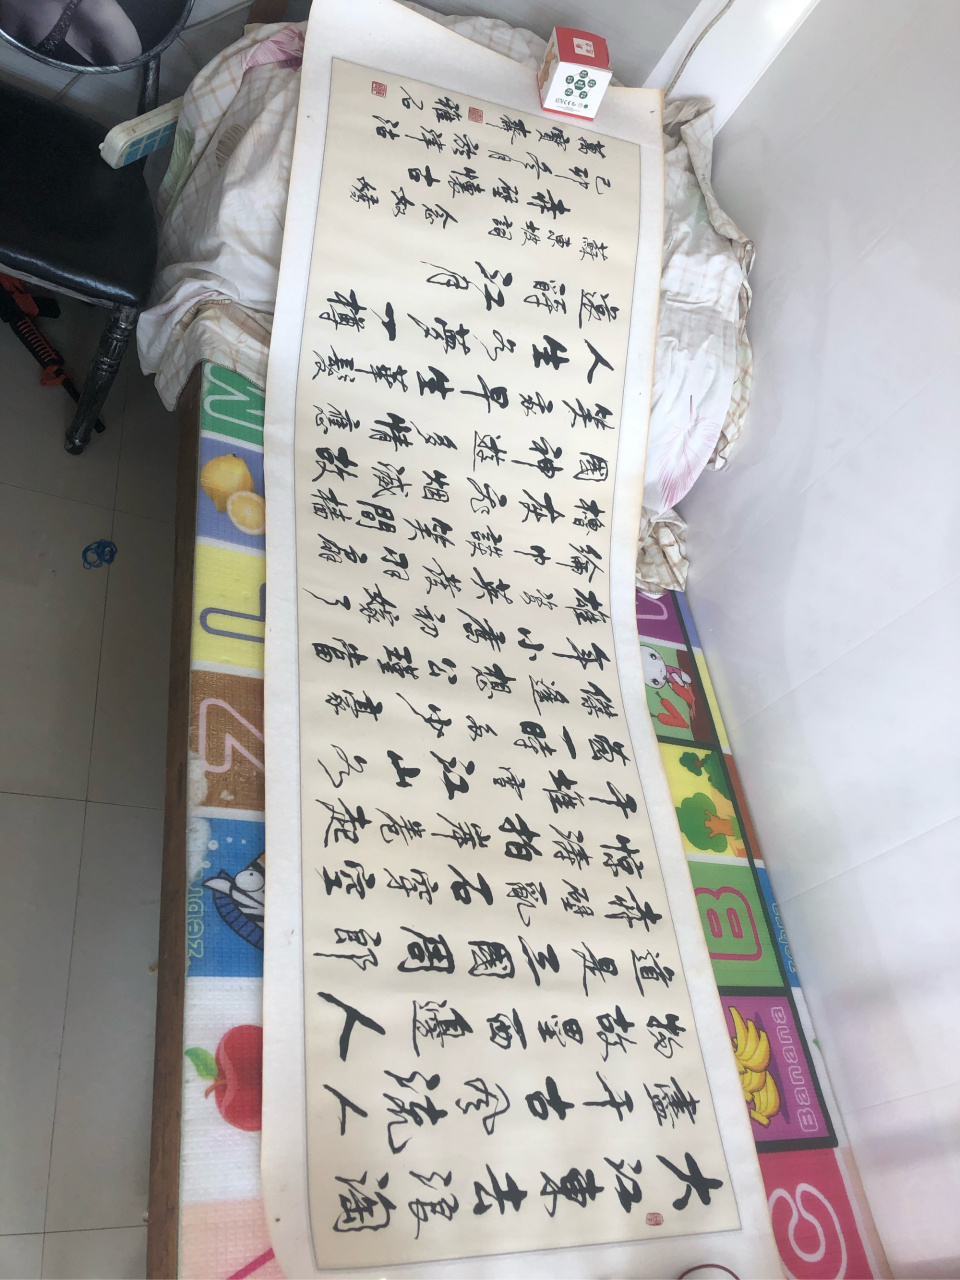 大江東去浪淘
盡千古風流人
物故壘西邊人
道是三國周郎
赤壁亂石穿空
驚濤拍岸卷起
千堆雪江山如
畫一時多少豪
傑遙想公瑾當
年小喬初嫁了
雄姿英發羽扇
綸巾談笑間檣
櫓灰飛烟滅故
國神遊多情應
笑我早生華髮
人生如夢一樽
還酹江月
蘇東坡詞念奴嬌
赤壁懷古
己卯冬月於津沽
萬寶齋
Zebra
Banana
B
C
Z
L